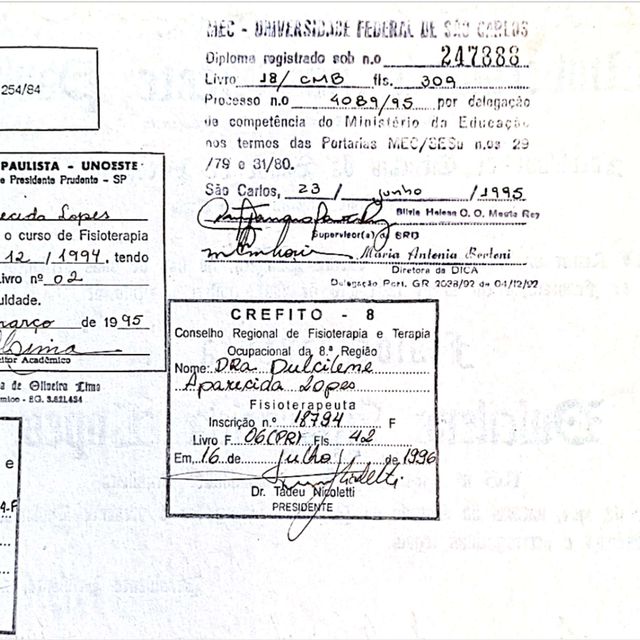 MEC - UNIVERSIDADE FEDERAL DE SÃO CARLOS
Diploma registrado sob n.o 247888
Livro 18/ CMB fls. 309
Processo n.o 4089/95 por delegação
de competência do Ministério da Educação
nos termos das Portarias MEC/SESu n.os 29
/79 e 31/80.
São Carlos, 23 / junho / 1995
Silvia Helena O. O.
Supervisor(a) da SRD
Maria Antonia Bertoni
Diretora da DICA
Delegação Port. GR 2028/92 de 04/12/92
254/84
PAULISTA - UNOESTE
e Presidente Prudente - SP
ecida Lopes
o curso de Fisioterapia
12 / 1994, tendo
Livro nº 02
uldade.
março de 1995
Acadêmico
a de Oliveira Lima
mico - RG. 3.821.434
CREFITO - 8
Conselho Regional de Fisioterapia e Terapia
Ocupacional da 8.ª Região
Nome: DRA Dulcilene
Aparecida Lopes
Fisioterapeuta
Inscrição n.º 18794 F
Livro F. 06(PR) Fls 42
Em, 16 de Julho de 1996
Dr. Tadeu Nicoletti
PRESIDENTE
e
4-F